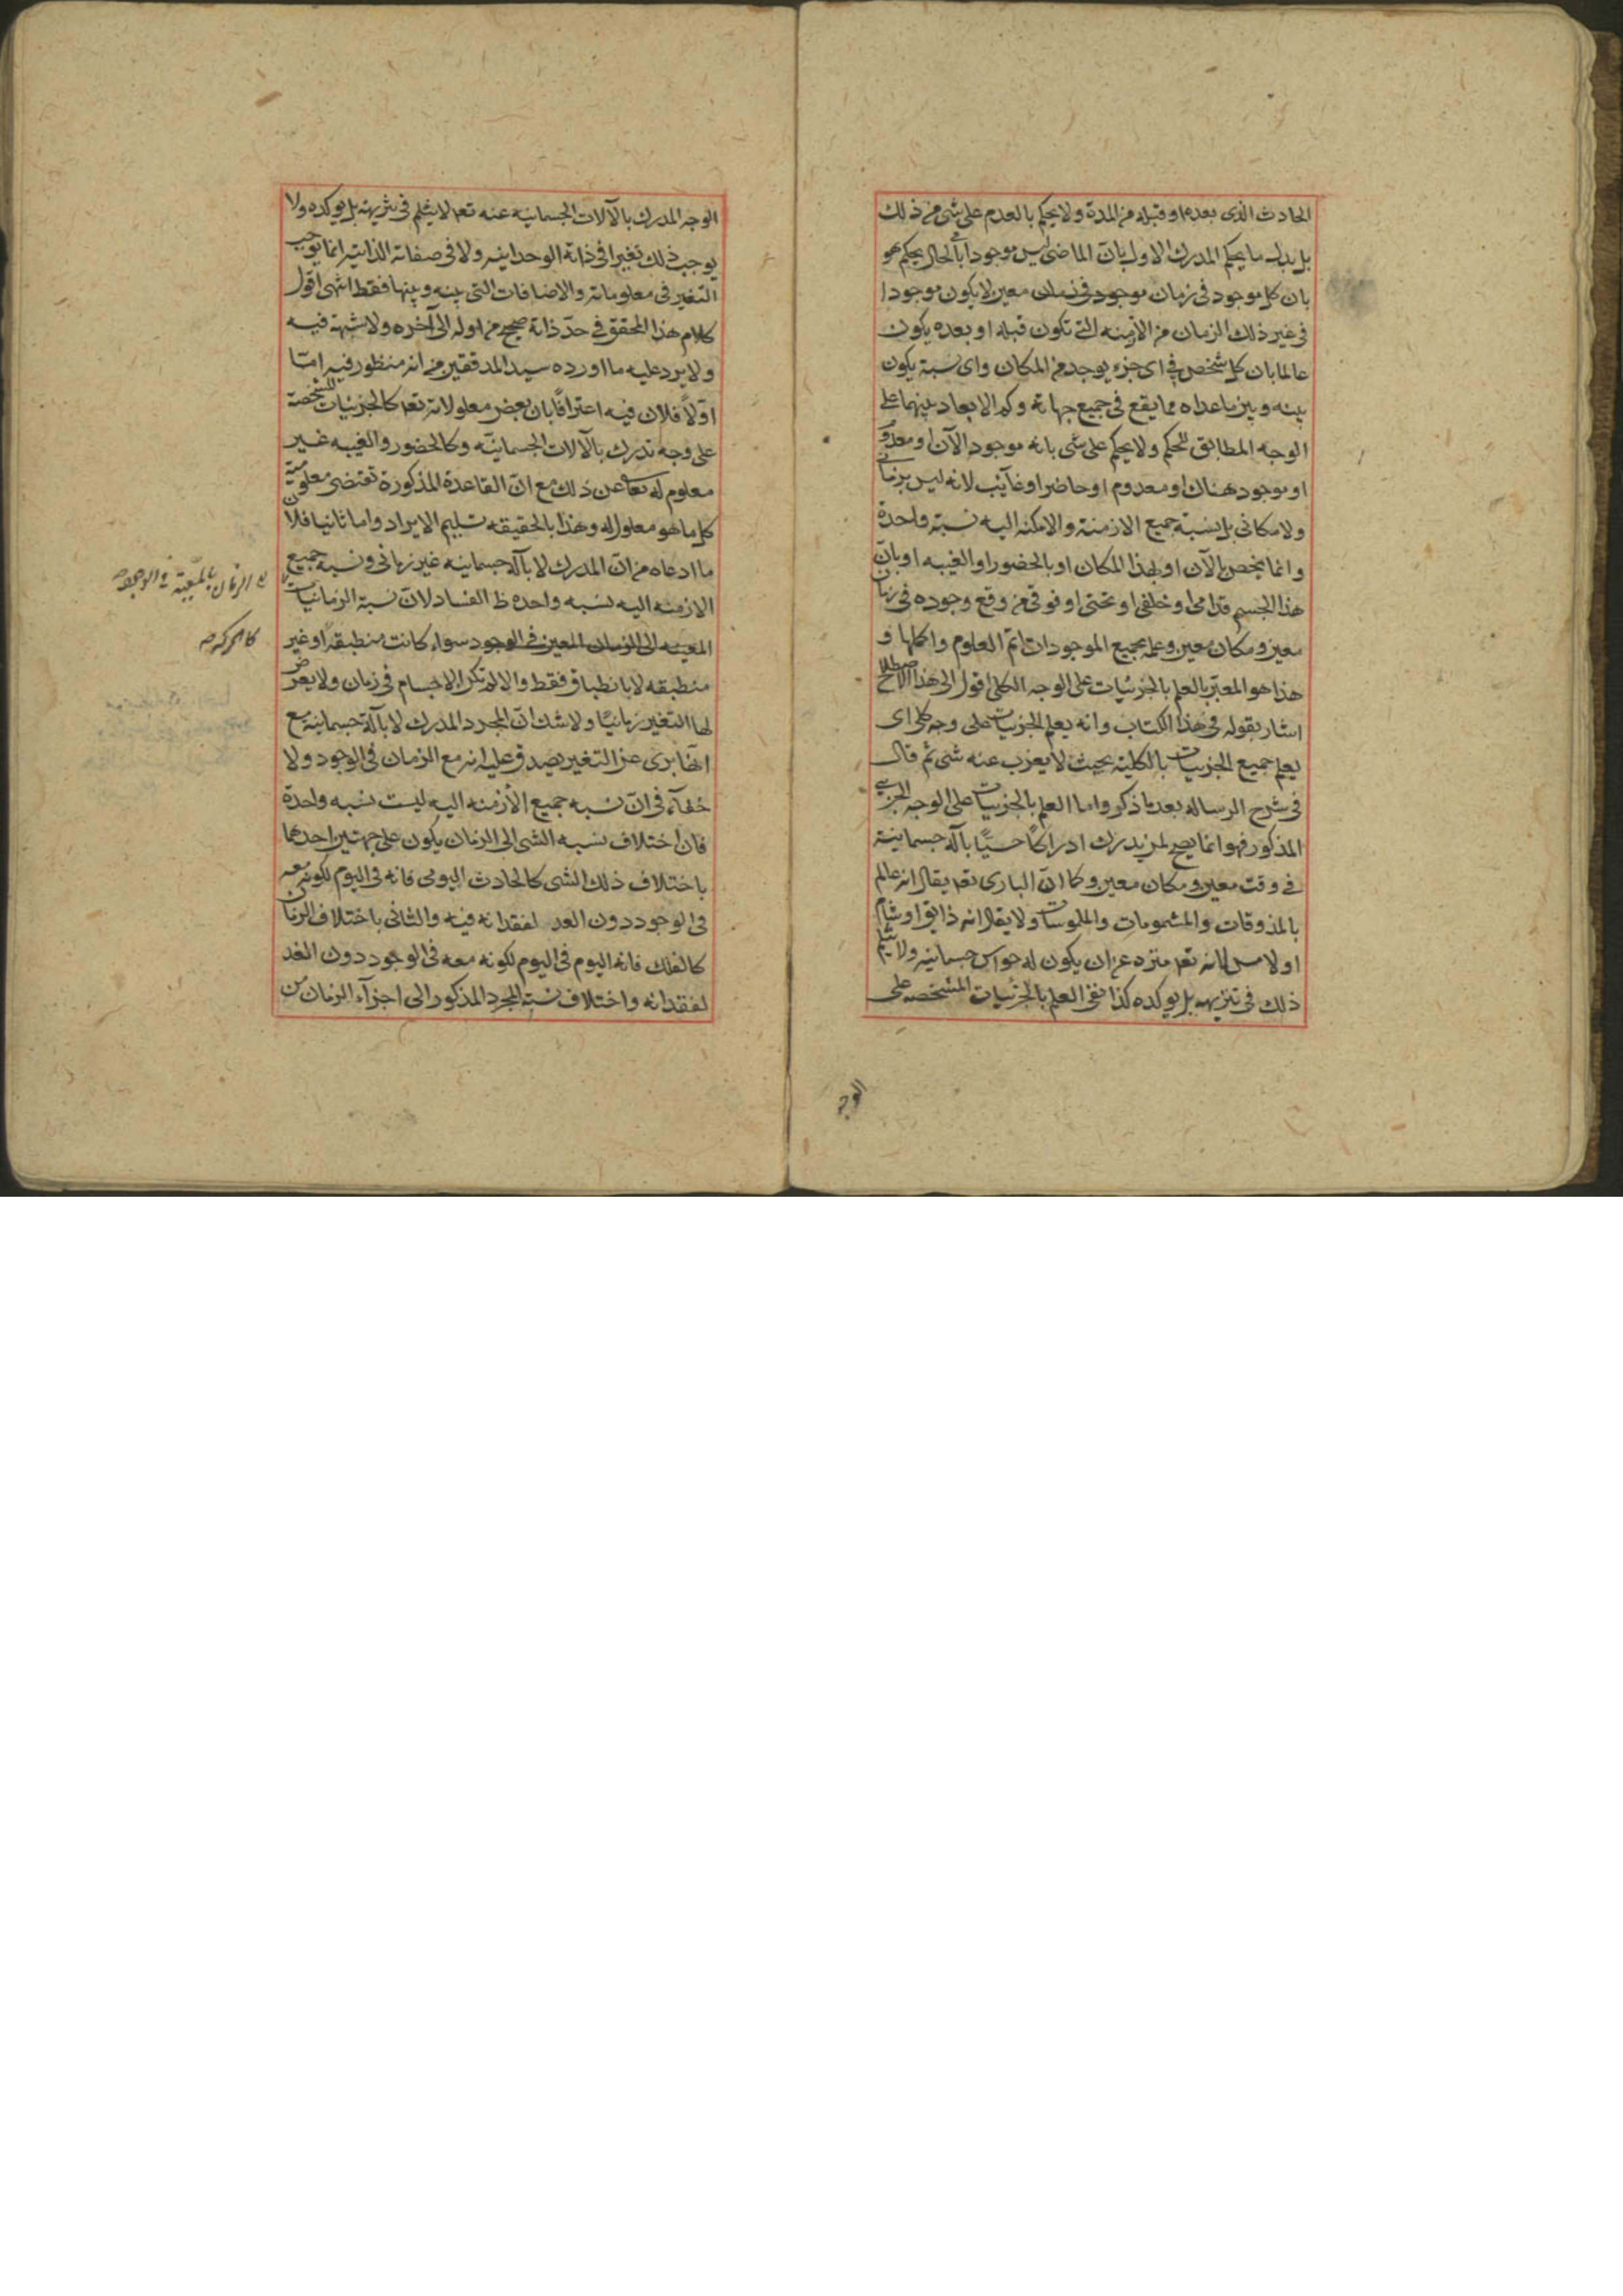 الحادث الذى بعده او قبله من المدة ولا يحكم بالعدم على شى من ذلك
بل بدل ما يحكم المدرك الاول بان الماضى ليس موجودا فى الحال يحكم هو
بان كل موجود فى زمان موجود فى زمان معين لا يكون موجودا
فى غير ذلك الزمان من الازمنه التى تكون قبله او بعده يكون
عالما بان كل شخص فى اى جزء يوجد من المكان واى نسبة يكون
بينه وبين ماعداه مما يقع فى جميع جهاته وكم الابعاد بينهما على
الوجه المطابق للحكم ولا يحكم على شى بانه موجود الآن او معدوم
او موجود هناك او معدوم او حاضر او غايب لانه ليس بزمانى
ولا مكانى بل نسبة جميع الازمنة والامكنه اليه نسبة واحدة
وانما يختص بالآن او بهذا المكان او بالحضور او الغيبه او بان
هذا الجسم قدامى او خلفى او تحتى او فوقى من وقع وجوده فى زمان
معين ومكان معين وعلمه بجميع الموجودات اتم العلوم واكملها و
هذا هو المعبر بالعلم بالجزئيات على الوجه الكلى اقول الى هذا الاصطلاح
اشار بقوله فى هذا الكتاب وانه يعلم الجزييات على وجه كلى اى
يعلم جميع الجزييات بالكليه بحيث لا يعزب عنه شى ثم قال
فى شرح الرساله بعد ما ذكر واما العلم بالجزييات على الوجه الجزيى
المذكور فهو انما يصح لمن يدرك ادراكا حسيا بآلة جسمانية
فى وقت معين ومكان معين وكما ان البارى تعه يقال انه عالم
بالمذوقات والمشمومات والملموسات ولا يقال انه ذايق او شام
او لامس لانه تعه منزه عن ان يكون له حواس جسمانيه ولا يثلم
ذلك فى تنزيهه بل يوكده كذا نفى العلم بالجزئيات المشخصه على
الوجه
الوجه المدرك بالآلات الجسمانيه عنه تعه لا يثلم فى تنزيهه بل يوكده ولا
يوجب ذلك تغيرا فى ذاته الوحدانيه ولا فى صفاته الذاتيه انما يوجب
التغير فى معلوماته والاضافات التى بينه وبينها فقط انتهى اقول
كلام هذا المحقق فى حد ذاته صحيح من اوله الى آخره ولا شبهة فيه
ولا يرد عليه ما اورده سيد المدققين من انه منظور فيه اما
اولا فلان فيه اعترافا بان بعض معلولاته تعه كالجزئيات المشخصة
على وجه تدرك بالآلات الجسمانيه وكالحضور والغيبه غير
معلوم له تعا عن ذلك مع ان القاعدة المذكورة تقتضى معلومية
كل ما هو معلول له وهذا بالحقيقه تسليم الايراد واما ثانيا فلان
ما ادعاه من ان المدرك لا بآلة جسمانيه غير زمانى ونسبه جميع
الازمنه اليه نسبه واحده ظ الفساد لان نسبة الزمانيات
المعينه الى الزمان المعين فى الوجود سواء كانت منطبقه او غير
منطبقه لا بانطباق فقط والا لم تكن الاجسام فى زمان ولا يعرض
لها التغير زمانيا ولا شك ان المجرد المدرك لا بآلة جسمانية مع
انها برى عن التغير يصدق عليه انه مع الزمان فى الوجود ولا
خفآء فى ان نسبه جميع الأزمنه اليه ليست نسبه واحدة
فان اختلاف نسبه الشى الى الزمان يكون على جهتين احدهما
باختلاف ذلك الشى كالحادث اليومى فانه فى اليوم لكونه معه
فى الوجود دون الغد لفقدانه فيه والثانى باختلاف الزمان
كالفلك فانه اليوم فى اليوم لكونه معه فى الوجود دون الغد
لفقدانه واختلاف نسبة المجرد المذكور الى اجزآء الزمان من
الزمان بالمعية فى الوجود
كالحركة